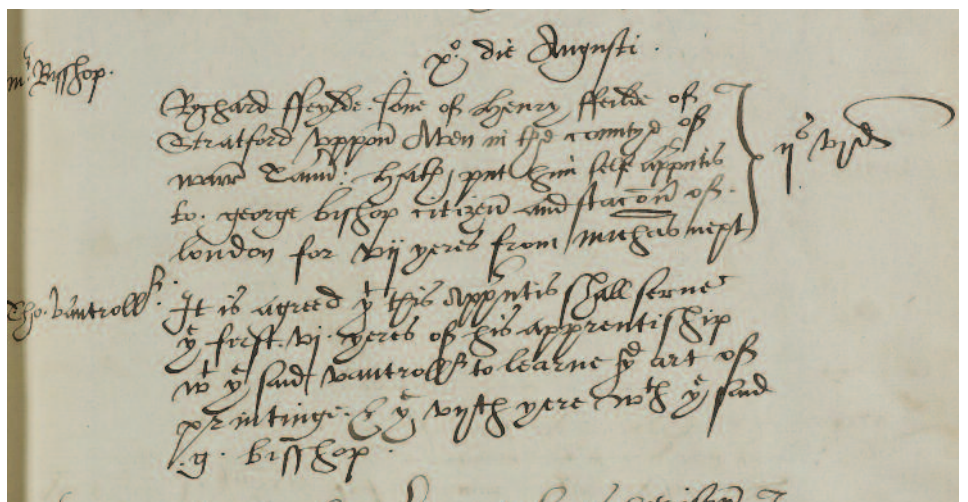 xo die Augusti.
mr Bisshop.
Rychard ffeylde sone of Henry ffeilde of
Stratford vppon Aven in the countye of
warr Tanner: hath put him self apprentis
to. george bishop citizen and stacōner of.
london for vij yeres from michās next
ijs vjd
Tho. vautroller
It is agreed yt this Apprentis shall serue
ye first. vj. yeres of his apprentiship
wt ye said vautroller to learne ye art of
printinge. & ye vijth yere wth ye said
.g. bisshop.